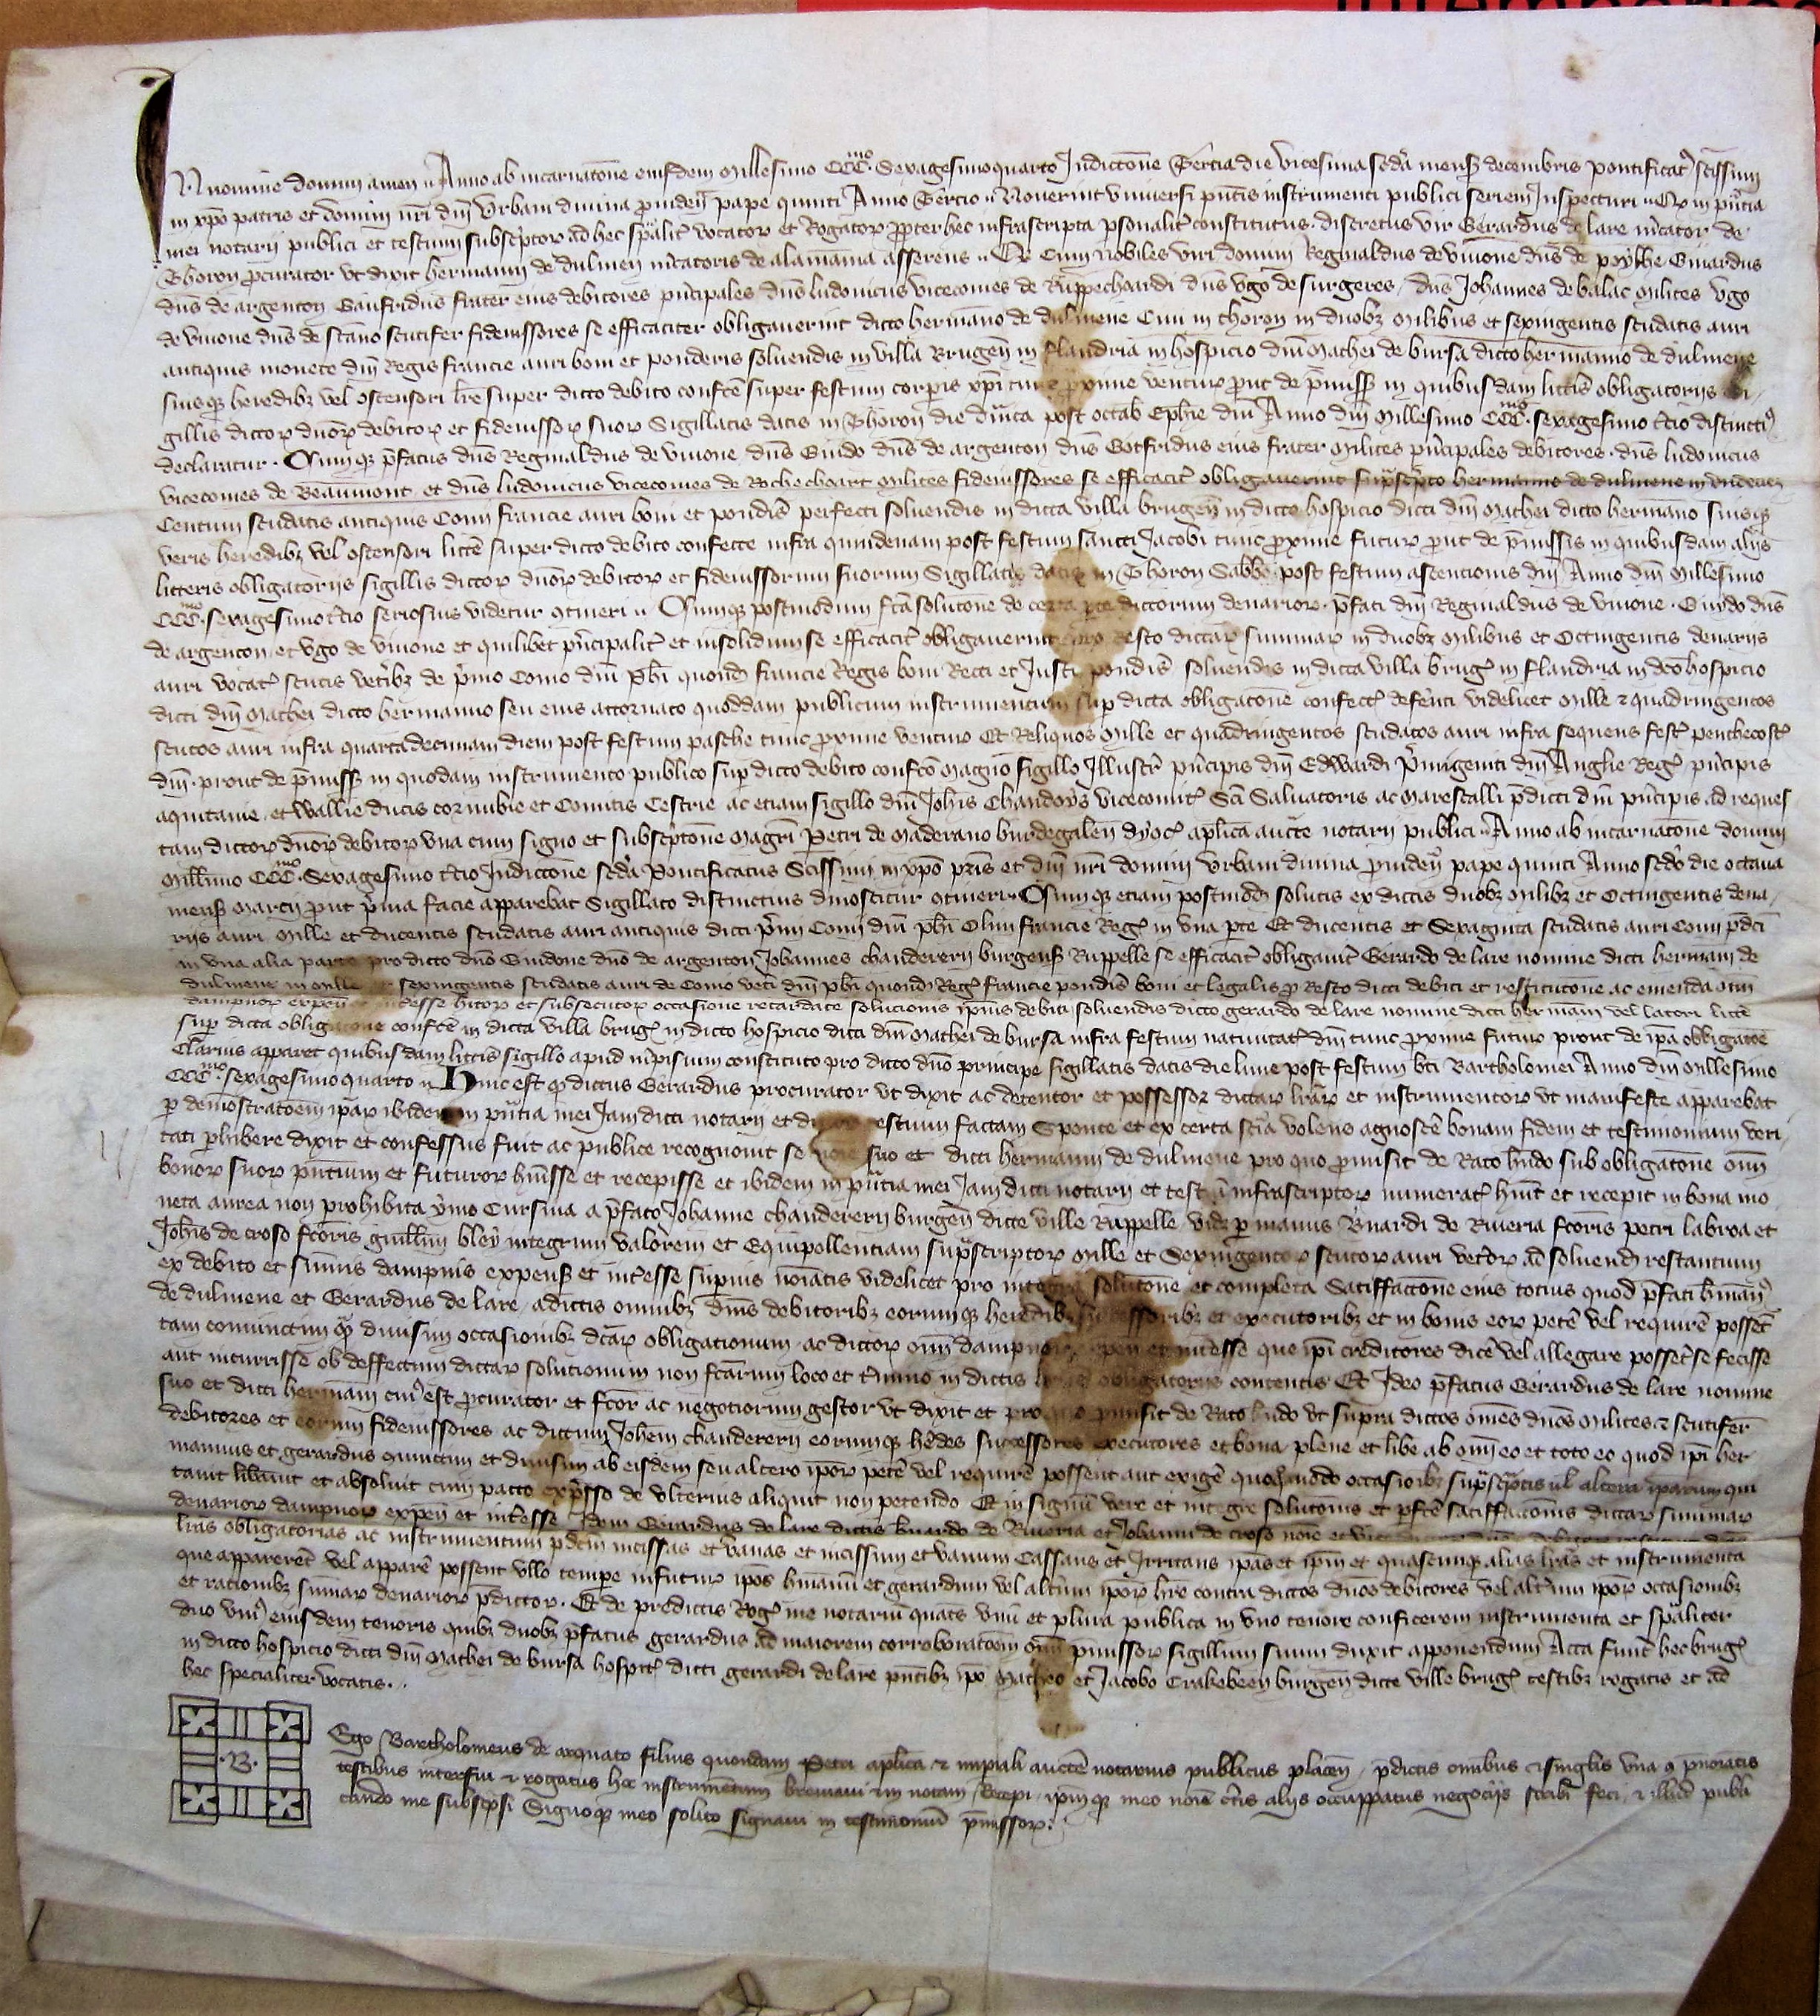 In nomine domini amen Anno ab incarnatōne eiusdem Millesimo CCCmo Sexagesimoquarto Indictōne Tercia die vicesima scda mensz decembris pontificat scissimi
in xpo patris et domini nri dni Urbani divina providen pape quinti Anno Tercio Noverint universi pntis instrumenti publici seriem Inspecturi Qz in pntia
mei notarii publici et testium subscptor ad hec spalit vocator et Rogator propter hec infrascripta psonalit constitutus discretus vir Gerardus de lare mcator de
Thoron pcurator ut dixit hermanni de dulmen mcatoris de alamania asserens Qz Cum nobiles viri domini Reginaldus de vivone dns de poythe Guiardus
dns de argenton Gaufridus frater eius debitores pncipales dns ludovicus vicecomes de Ruppechoardi dns Ugo de surgeres dns Johannes de balac milites Ugo
de vivone dns de scano scutifer fideiussores se efficaciter obligaverint dicto hermano de dulmene Civi in thoron in duobz milibus et sexingentis scudatis auri
antiquis monete dni Regis francie auri boni et ponderis solvendis in villa Brugen in flandria in hospicio dni Mathei de bursa dicto hermanno de dulmene
suisqz heredibz vel ostensori lre super dicto debito confcē super festum corpis xpi proxime ventur prout de pmissz in quibusdam littis obligatoriis
gillis dictor dnor debitor et fideiussor suor Sigillatis datis in Thoron die dnica post octab Ephie dni Anno dni Millesimo CCCmo sexagesimo tcio distincti
declaratur Cumqz pfatus dns Reginaldus de vivone dns Guido dns de argenton dns Gotfridus eius frater Milites pncipales debitores dns ludovicus
vicecomes de Beaumont et dns ludovicus vicecomes de Rochechoart milites fideiussores se efficacit obligaverint supscpto hermanno de dulmene in
Centum scudatis antiquis Coni francie auri boni et pondis perfecti solvendis in dicta villa brugen in dicto hospicio dicti dni Mathei dicto hermano suisqz
veris heredibz vel ostensori littē super dicto debito confecte infra quindenam post festum sancti Jacobi tunc pxime futur prout de pmissis in quibusdam aliis
litteris obligatoriis sigillis dictor dnor debitor et fideiussorum suorum Sigillatis datis in Thoron Sabbo post festum ascencionis dni Anno dni Millesimo
CCCmo sexagesimo tcio seriosius videtur gtineri Cumqz postmodum fca solutone de certa pte dictorum denarior pfati dni Reginaldus de vivone Guido dns
de argenton et Ugo de vivone et quilibet pncipalit et insolidum se efficacit obligaverint pro resto dictar summar in duobz Milibus et Octingentis denariis
auri vocat scutis vetibz de pmo Conio dni phi quond francie Regis boni Recti et Justi pondis solvendis in dicta villa brug in flandria in dco hospicio
dicti dni Mathei dicto hermanno seu eius attornato quoddam publicum instrumentum sup dicta obligatone confect defenti videlicet Mille et quadringentos
scutos auri infra quartadecimam diem post festum pasche tunc pxime ventur Et Reliquos Mille et quadringentos scudatos auri infra sequens fest penthecost
dni prout de pmissz in quodam instrumento publico sup dicto debito confcō Magno sigillo Illustr pncipis dni Edwardi Pmogeniti dni Anglie Reg pncipis
aquitanie et Wallie ducis cornubie et Comitis Cestrie ac etiam sigillo dni Johis Chandoys vicecomit Sci Salvatoris ac Marescalli pdicti dni pncipis ad reques
tam dictor dnor debitor una cum signo et subscptone Magri Petri de Maderano burdegalen dyoc aplica aucte notarii publici Anno ab incarnatone domini
Millimo CCCmo Sexagesimo tcio Indictone scda Pontificatus Scissimi in xpo pris et dni nri domini Urbani divina pviden pape quinti Anno scdo die octava
mensz Marcii prout pma facie apparebat Sigillato distinctius dinoscitur gtineri Cumqz etiam postmod solutis ex dictis duobz Milibz et Octingentis dena
riis auri Mille et ducentis scudatis auri antiquis dicti pmi Coni dni phi Olim francie Reg in una pte Et ducentis et Sexaginta scudatis auri Coni pdcti
in una alia parte pro dicto dno Guidone dno de argenton Johannes chandererii burgensz Ruppelle se efficacit obligavit Gerardo de lare nomine dicti hermani de
dulmene in Mille et sexingentis scudatis auri de Conio veti dni phi quond Reg francie pondis boni et legalis p Resto dicti debiti et restitutone ac emenda oim
dampnor expen et intesse hitor et subsecutor occasione retardate solucionis ipius debiti solvendis dicto gerardo de lare nomine dicti hermani vel latori littē
sup dicta obligatone confcē in dicta villa brug in dicto hospicio dicti dni Mathei de bursa infra festum nativitat dni tunc pxime futur prout de ipa obligatoe
clarius apparet quibusdam littis sigillo apud constituto pro dicto dno principe sigillatis datis die lune post festum bti Bartholomei Anno dni Millesimo
CCCmo sexagesimo quarto Hinc est qd dictus Gerardus procurator ut dixit ac detentor et possessor dictar lrar et instrumentor ut manifeste apparebat
p demostratoem ipar ibidem in pntia mei Jamdicti notarii et dictor testium factam Sponte et ex certa scia volens agnoscē bonam fidem et testimonium veri
tati phibere dixit et confessus fuit ac publice recognovit se noie suo et dicti hermanni de dulmene pro quo pmisit de Rato hndo sub obligatone oim
bonor suor pntium et futuror huisse et recepisse et ibidem in pntia mei Jamdicti notarii et testi infrascriptor numerat huit et recepit in bona mo
neta aurea non prohibita ymo Cursiva a pfato Johanne chandererii burgen dicte ville Ruppelle vidz p manus Bnardi de Riveria fcoris petri labroa et
Johis de croso fcoris guillmi bley integrum valorem et Equipollentiam supscriptor Mille et Sexingentor scutor auri vetor ad solvend restantium
ex debito et summis dampnis expensz et intesse supius noiatis videlicet pro integra solutone et completa Satiffactone eius totius quod pfati hmani
de dulmene et Gerardus de lare a dictis omnibz dnis debitoribz eorumqz heredibz successoribz et executoribz et in bonis eor petē vel requirē possēt
tam coniunctim qz divisim occasionibz dcar obligationum ac dictor oim dampnor expen et intesse que ipi creditores dicē vel allegare possēt se fecisse
aut incurrisse ob deffectum dictar solutionum non fcarum loco et tmino in dictis lris obligatoriis contentis Et Ideo pfatus Gerardus de lare nomine
suo et dicti hermani cui est pcurator et fcor ac negotiorum gestor ut dixit et pro quo pmisit de Rato hndo ut supra dictos omes dnos Milites et scutifer
debitores et eorum fideiussores ac dictum Johem chandererii eorumqz hedes successores executores et bona plene et libe ab omi eo et toto eo quod ipi her
mannus et gerardus coniunctim et divisim ab eisdem seu altero ipor petē vel requirē possent aut exigē quoqmodo occasioibz supscptis ul altera iparum qui
tavit libavit et absolvit cum pacto expsso de ulterius aliquit non petendo Et in signum vere et integre solutonis et pfcē satiffacconis dictar summar
denarior dampnor expen et intesse Idem Gerardus de lare dictis bnardo de Riveria et Johanni de croso noie et
lras obligatorias ac instrumentum pdcm incissas et vanas et incissum et vanum Cassans et Irritans ipas et ipm et quascunqz alias lras et instrumenta
que apparerēt vel apparē possent ullo tempe infutur ipos hmanu et gerardum vel altum ipor hre contra dictos dnos debitores vel altum ipor occasionibz
et racionibz summar denarior pdictor Et de predictis Rog me notariu quats unu et plura publica in uno tenore conficerem instrumenta et spaliter
duo unius eiusdem tenoris quibz duobz pfatus gerardus ad maiorem corroboratoem oim pmissor sigillum suum duxit apponendum Acta funt hec brug
in dicto hospicio dicti dni Mathei de bursa hospit dicti gerardi de lare pntibz ipo Matheo et Jacobo Crakebeen burgen dicte ville brug testibz rogatis et ad
hec specialiter vocatis
·B·
Ego Bartholomeus de arquato filius quondam Petri aplica et impiali auctē notarius publicus placen pdictis omibus et singlis una q pnoiatis
testibus interfui et rogatus hec instrumentum breviavi et in notam Recepi ipmqz meo noie ctis aliis occuppatus negociis scribi feci et illud publi
cando me subscpsi Signoqz meo solito signavi in testimoniū pmissor